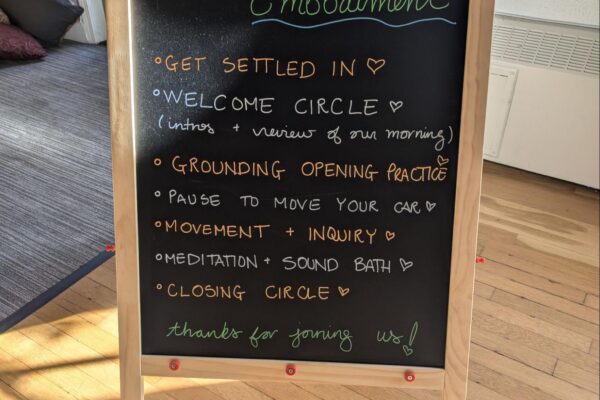 Embodiment
GET SETTLED IN
WELCOME CIRCLE
(intros + review of our morning)
GROUNDING OPENING PRACTICE
PAUSE TO MOVE YOUR CAR
MOVEMENT + INQUIRY
MEDITATION + SOUND BATH
CLOSING CIRCLE
thanks for joining us!